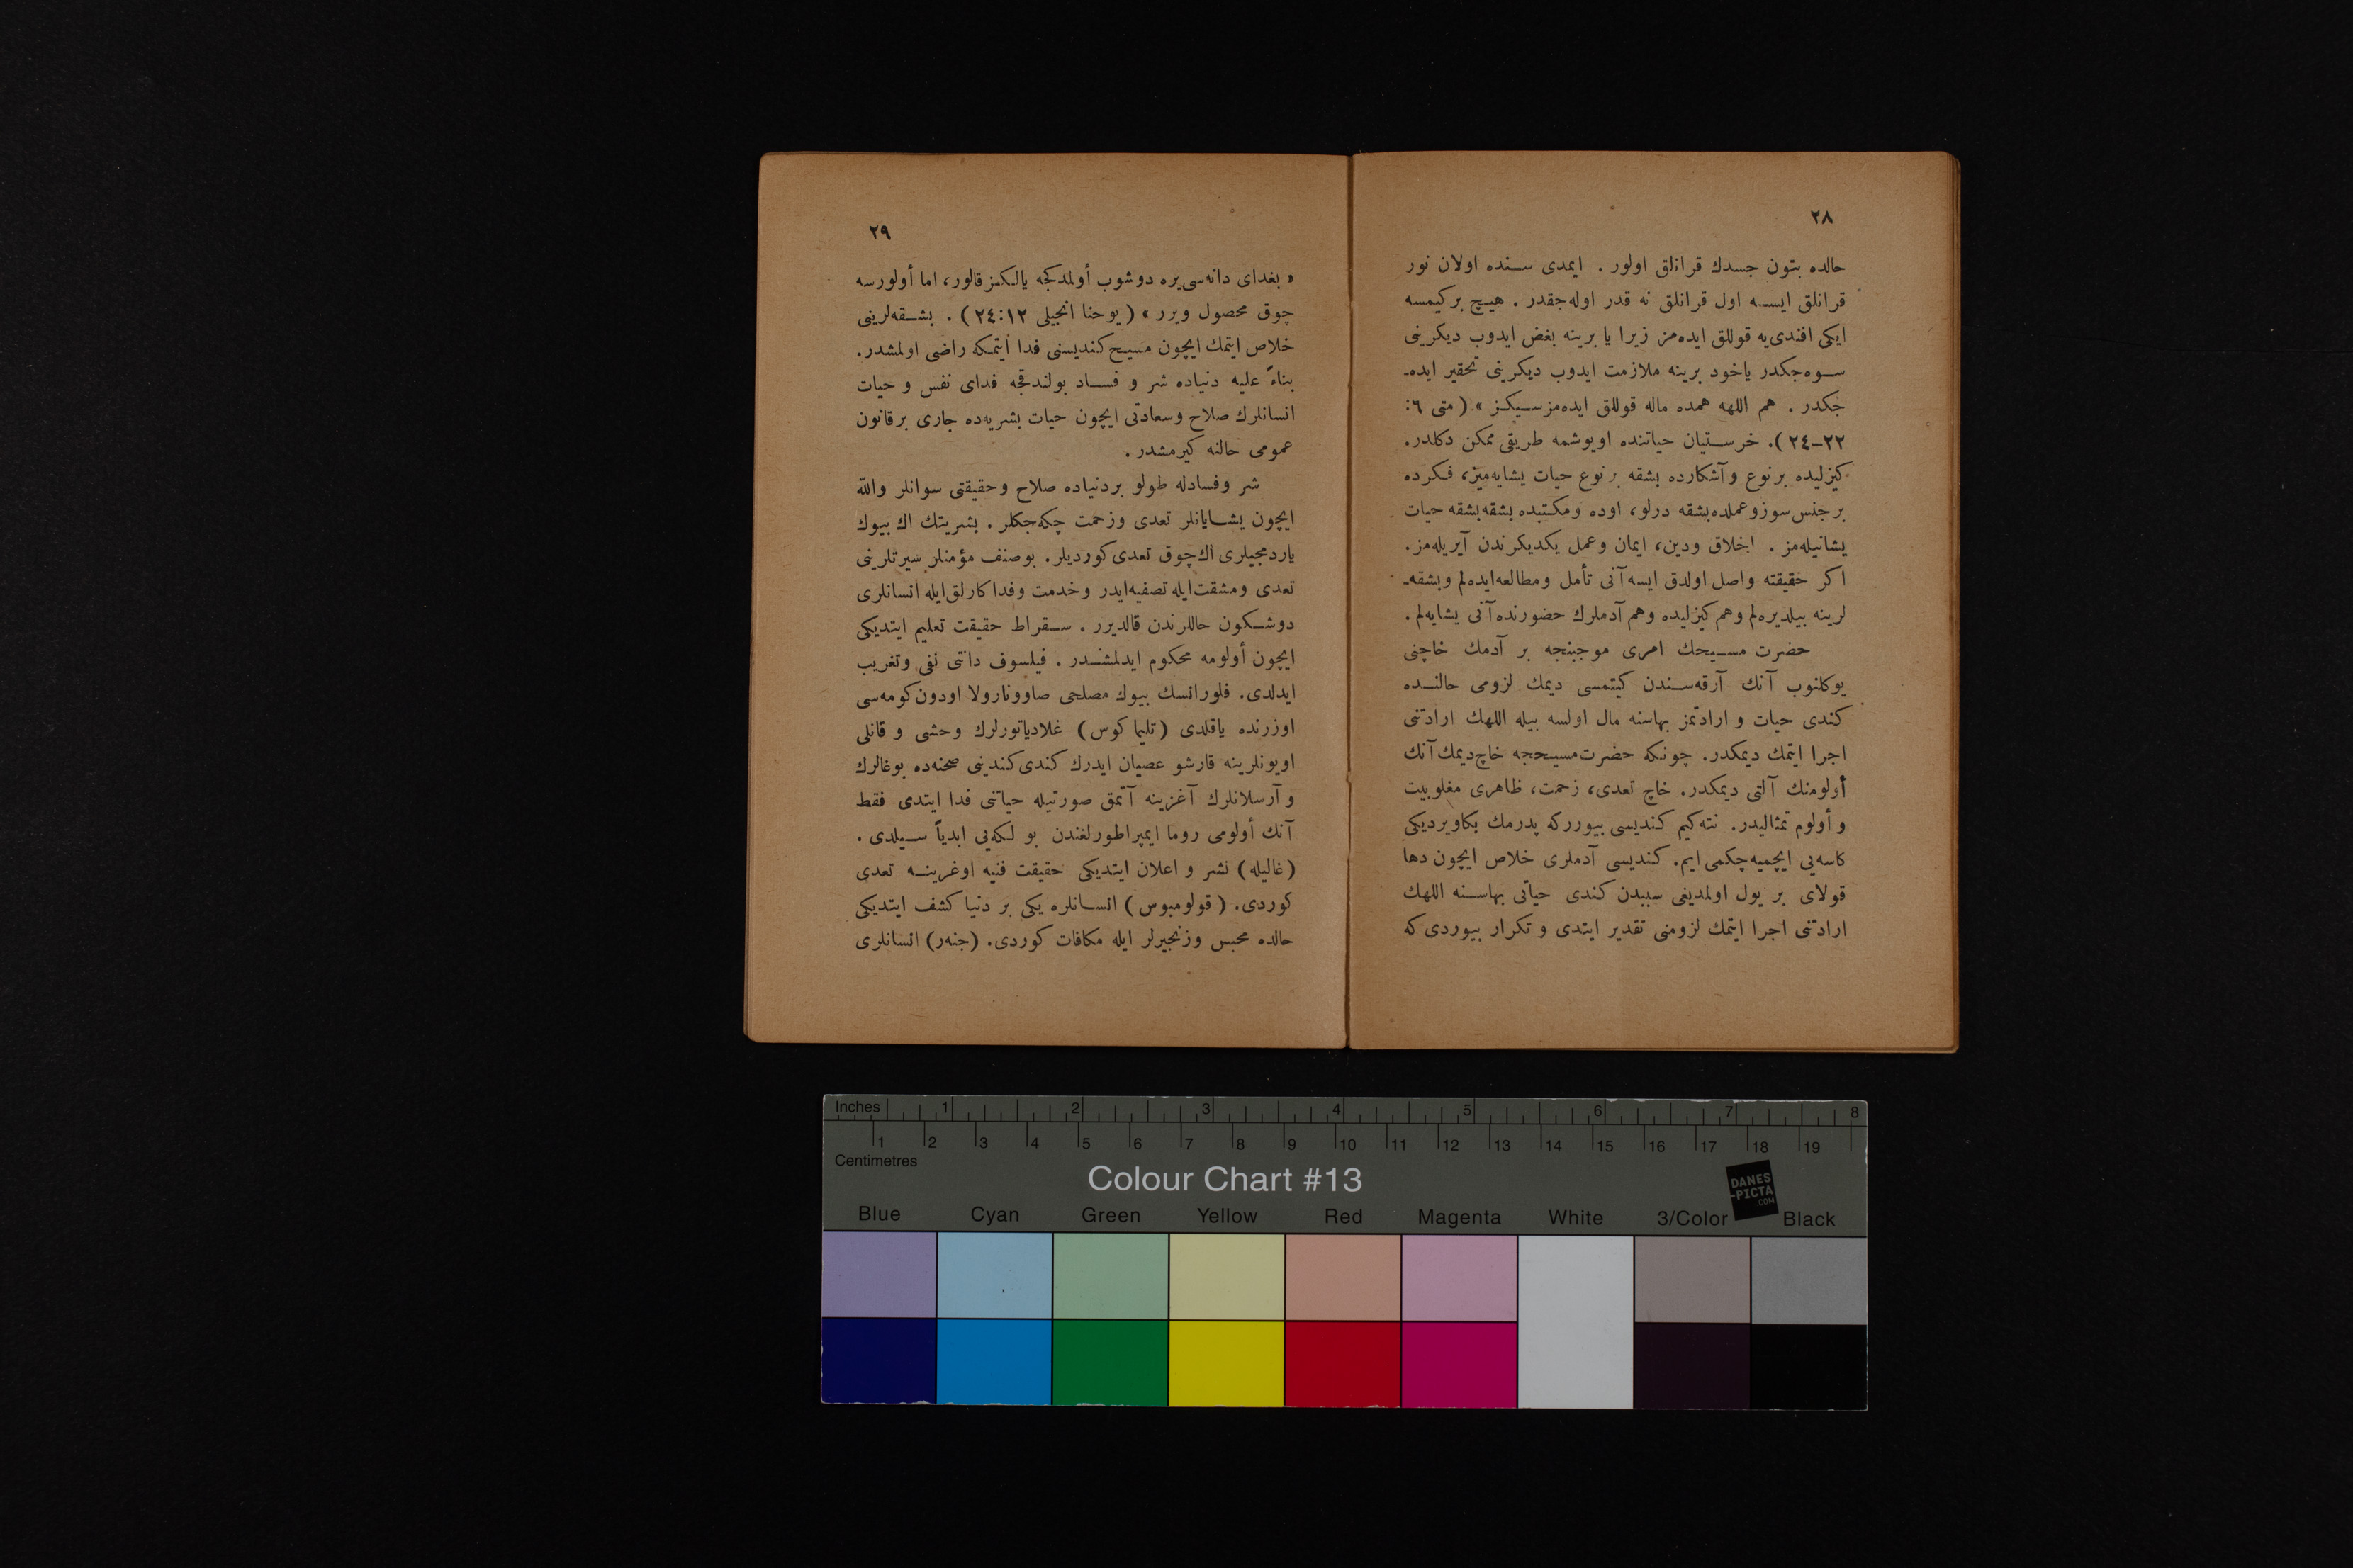 ٢٨
حالده بتون جسدك قرانلق اولور . ايمدى سنده اولان نور
قرانلق ايسه اول قرانلق نه قدر اوله‌جقدر . هيچ بركيمسه
ايكى افندى‌يه قوللق ايده‌مز زيرا يا برينه بغض ايدوب ديكرينى
سوه‌جكدر ياخود برينه ملازمت ايدوب ديكرينى تحقير ايده-
جكدر . هم اللهه همده ماله قوللق ايده‌مزسيكز » ( متى ٦:
٢٢-٢٤ ). خرستيان حياتنده اويوشمه طريقى ممكن دكلدر.
كيزليده برنوع وآشكارده بشقه برنوع حيات يشايه‌ميز، فكرده
برجنس سوزوعملده بشقه درلو، اوده ومكتبده بشقه بشقه حيات
يشانيله‌مز . اخلاق ودين، ايمان وعمل يكديكرندن آيريله‌مز.
اكر حقيقته واصل اولدق ايسه آنى تأمل ومطالعه ايده‌لم وبشقه-
لرينه بيلديره‌لم وهم كيزليده وهم آدملرك حضورنده آنى يشايه‌لم .
حضرت مسيحك امرى موجبنجه بر آدمك خاچنى
يوكلنوب آنك آرقه‌سندن كيتمسى ديمك لزومى حالنده
كندى حيات و ارادتمز بهاسنه مال اولسه بيله اللهك ارادتنى
اجرا ايتمك ديمكدر. چونكه حضرت مسيحجه خاچ ديمك آنك
أولومنك آلتى ديمكدر. خاچ تعدى، زحمت، ظاهرى مغلوبيت
و أولوم تمثاليدر. نته‌كيم كنديسى بيورركه پدرمك بكاويرديكى
كاسه‌يى ايچميه‌چكمى ايم. كنديسى آدملرى خلاص ايچون دها
قولاى بر يول اولمديغى سببدن كندى حياتى بهاسنه اللهك
ارادتنى اجرا ايتمك لزومنى تقدير ايتدى و تكرار بيوردى كه
٢٩
« بغداى دانه‌سى يره دوشوب أولمدكجه يالكز قالور، اما أولورسه
چوق محصول ويرر » ( يوحنا انجيلى ٢٤:١٢ ) . بشقه‌لرينى
خلاص ايتمك ايچون مسيح كنديسنى فدا ايتمكه راضى اولمشدر.
بناءً عليه دنياده شر و فساد بولندقجه فداى نفس و حيات
انسانلرك صلاح وسعادتى ايچون حيات بشريه‌ده جارى برقانون
عمومى حالنه كيرمشدر .
شر وفسادله طولو بردنياده صلاح وحقيقتى سوانلر والله
ايچون يشايانلر تعدى وزحمت چكه‌جكلر . بشريتك اك بيوك
ياردمجيلرى اك چوق تعدى كورديلر. بوصنف مؤمنلر سيرتلرينى
تعدى ومشقت ايله تصفيه ايدر وخدمت وفداكارلق ايله انسانلرى
دوشكون حاللرندن قالديرر . سقراط حقيقت تعليم ايتديكى
ايچون أولومه محكوم ايدلمشدر . فيلسوف دانتى نفى وتغريب
ايدلدى. فلورانسك بيوك مصلحى صاوونارولا اودون كومه‌سى
اوزرنده ياقلدى (تليماكوس) غلادياتورلرك وحشى و قانلى
اويونلرينه قارشو عصيان ايدرك كندى كندينى صحنه‌ده بوغالرك
و آرسلانلرك آغزينه آتمق صورتيله حياتنى فدا ايتدى فقط
آنك أولومى روما ايمپراطورلغندن بو لكه‌يى ابدياً سيلدى .
(غاليله) نشر و اعلان ايتديكى حقيقت فنيه اوغرينه تعدى
كوردى. ( قولومبوس ) انسانلره يكى بر دنيا كشف ايتديكى
حالده محبس وزنجيرلر ايله مكافات كوردى. (جنه‌ر) انسانلرى
Inches 1 2 3 4 5 6 7 8
1 2 3 4 5 6 7 8 9 10 11 12 13 14 15 16 17 18 19
Centimetres
Colour Chart #13
DANES
-PICTA
.COM
Blue Cyan Green Yellow Red Magenta White 3/Color Black